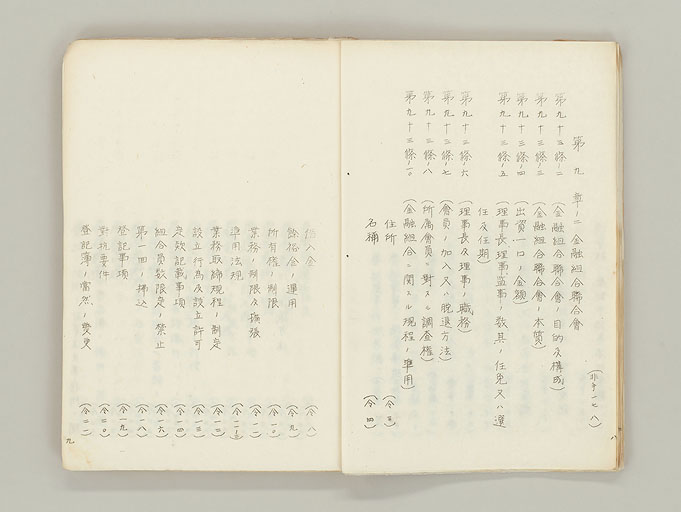 第九章ノ二 金融組合聯合會
(非中一七八)
第九十三條ノ二 (金融組合聯合會ノ目的及構成)
第九十三條ノ三 (金融組合聯合會ノ本質)
第九十三條ノ四 (出資一口ノ金額)
第九十三條ノ五 (理事長理事監事ノ数其ノ任免又ハ選
任及任期)
第九十三條ノ六 (理事長及理事ノ職務)
第九十三條ノ七 (會員ノ加入又ハ脱退方法)
第九十三條ノ八 (所属會員ニ對スル調査権)
第九十三條ノ一〇 (金融組合ニ関スル規程ノ準用)
住所 (仝三)
名稱 (仝四)
八
借入金 (仝八)
餘裕金ノ運用 (仝九)
所有権ノ制限 (仝一〇)
業務ノ制限及擴張 (仝一一)
準用法規
業務取締規程ノ制定 (仝一二)
設立行為及設立許可 (仝一三)
定款記載事項 (仝一四)
組合員数限定ノ禁止 (仝一六)
第一回ノ拂込 (仝一八)
登記事項 (仝一九)
對抗要件 (仝二〇)
登記簿ノ當然ノ變更 (仝二一)
九